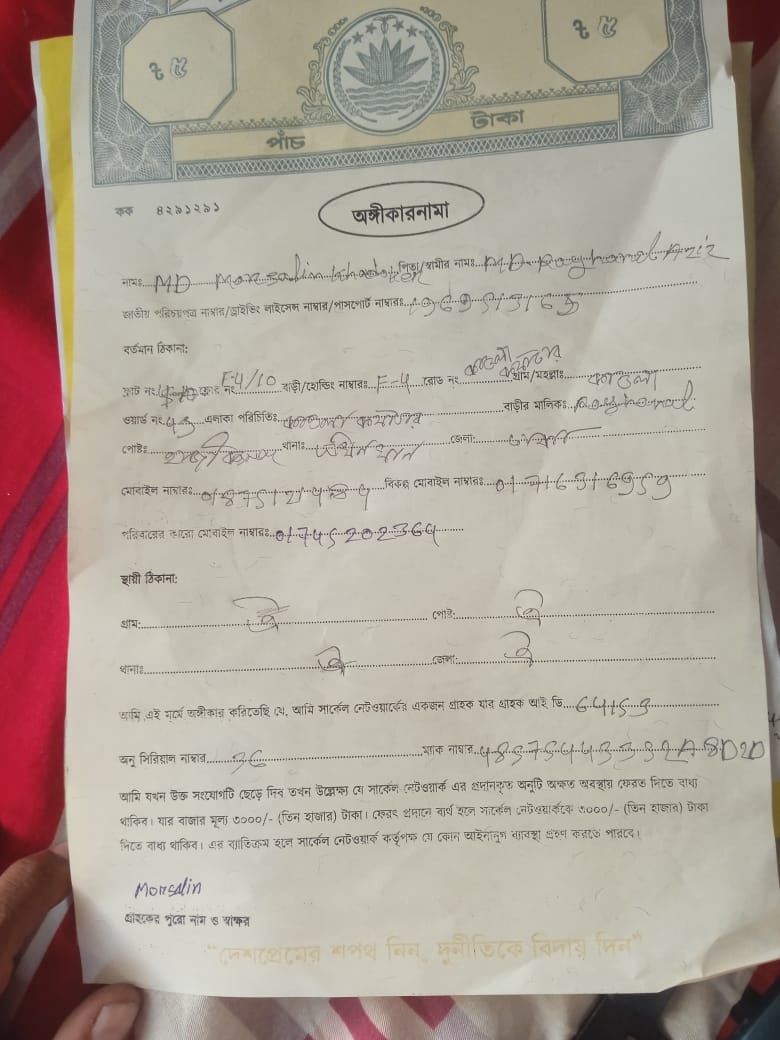 ৳ ৫ ৳ ৫
পাঁচ টাকা
কক ৪২৯১২৯১
অঙ্গীকারনামা
নামঃ MD Morsalin পিতা/স্বামীর নামঃ MD Aziz
জাতীয় পরিচয়পত্র নাম্বার/ড্রাইভিং লাইসেন্স নাম্বার/পাসপোর্ট নাম্বারঃ
বর্তমান ঠিকানা:
ফ্লাট নং F-4/10 বাড়ী/হোল্ডিং নাম্বারঃ F-4 রোড নং কাওলা গ্রাম/মহল্লাঃ কাওলা
ওয়ার্ড নং 43 এলাকা পরিচিতিঃ কাওলা বাড়ীর মালিকঃ
পোষ্টঃ থানাঃ দক্ষিনখান জেলা:
মোবাইল নাম্বারঃ বিকল্প মোবাইল নাম্বারঃ 01716316959
পরিবারের কারো মোবাইল নাম্বারঃ 01745202364
স্থায়ী ঠিকানা:
গ্রাম: ঐ পোষ্ট: ঐ
থানাঃ ঐ জেলা: ঐ
আমি এই মর্মে অঙ্গীকার করিতেছি যে, আমি সার্কেল নেটওয়ার্কের একজন গ্রাহক যার গ্রাহক আই ডি 64153
অনু সিরিয়াল নাম্বার 36 ম্যাক নাম্বার 485754433382A8D2D
আমি যখন উক্ত সংযোগটি ছেড়ে দিব তখন উল্লেক্ষ্য যে সার্কেল নেটওয়ার্ক এর প্রদানকৃত অনুটি অক্ষত অবস্থায় ফেরত দিতে বাধ্য
থাকিব। যার বাজার মূল্য ৩০০০/- (তিন হাজার) টাকা। ফেরৎ প্রদানে ব্যর্থ হলে সার্কেল নেটওয়ার্ককে ৩০০০/- (তিন হাজার) টাকা
দিতে বাধ্য থাকিব। এর ব্যতিক্রম হলে সার্কেল নেটওয়ার্ক কর্তৃপক্ষ যে কোন আইনানুগ ব্যবস্থা গ্রহণ করতে পারবে।
Morsalin
গ্রাহকের পুরো নাম ও স্বাক্ষর
“দেশপ্রেমের শপথ নিন, দুর্নীতিকে বিদায় দিন”